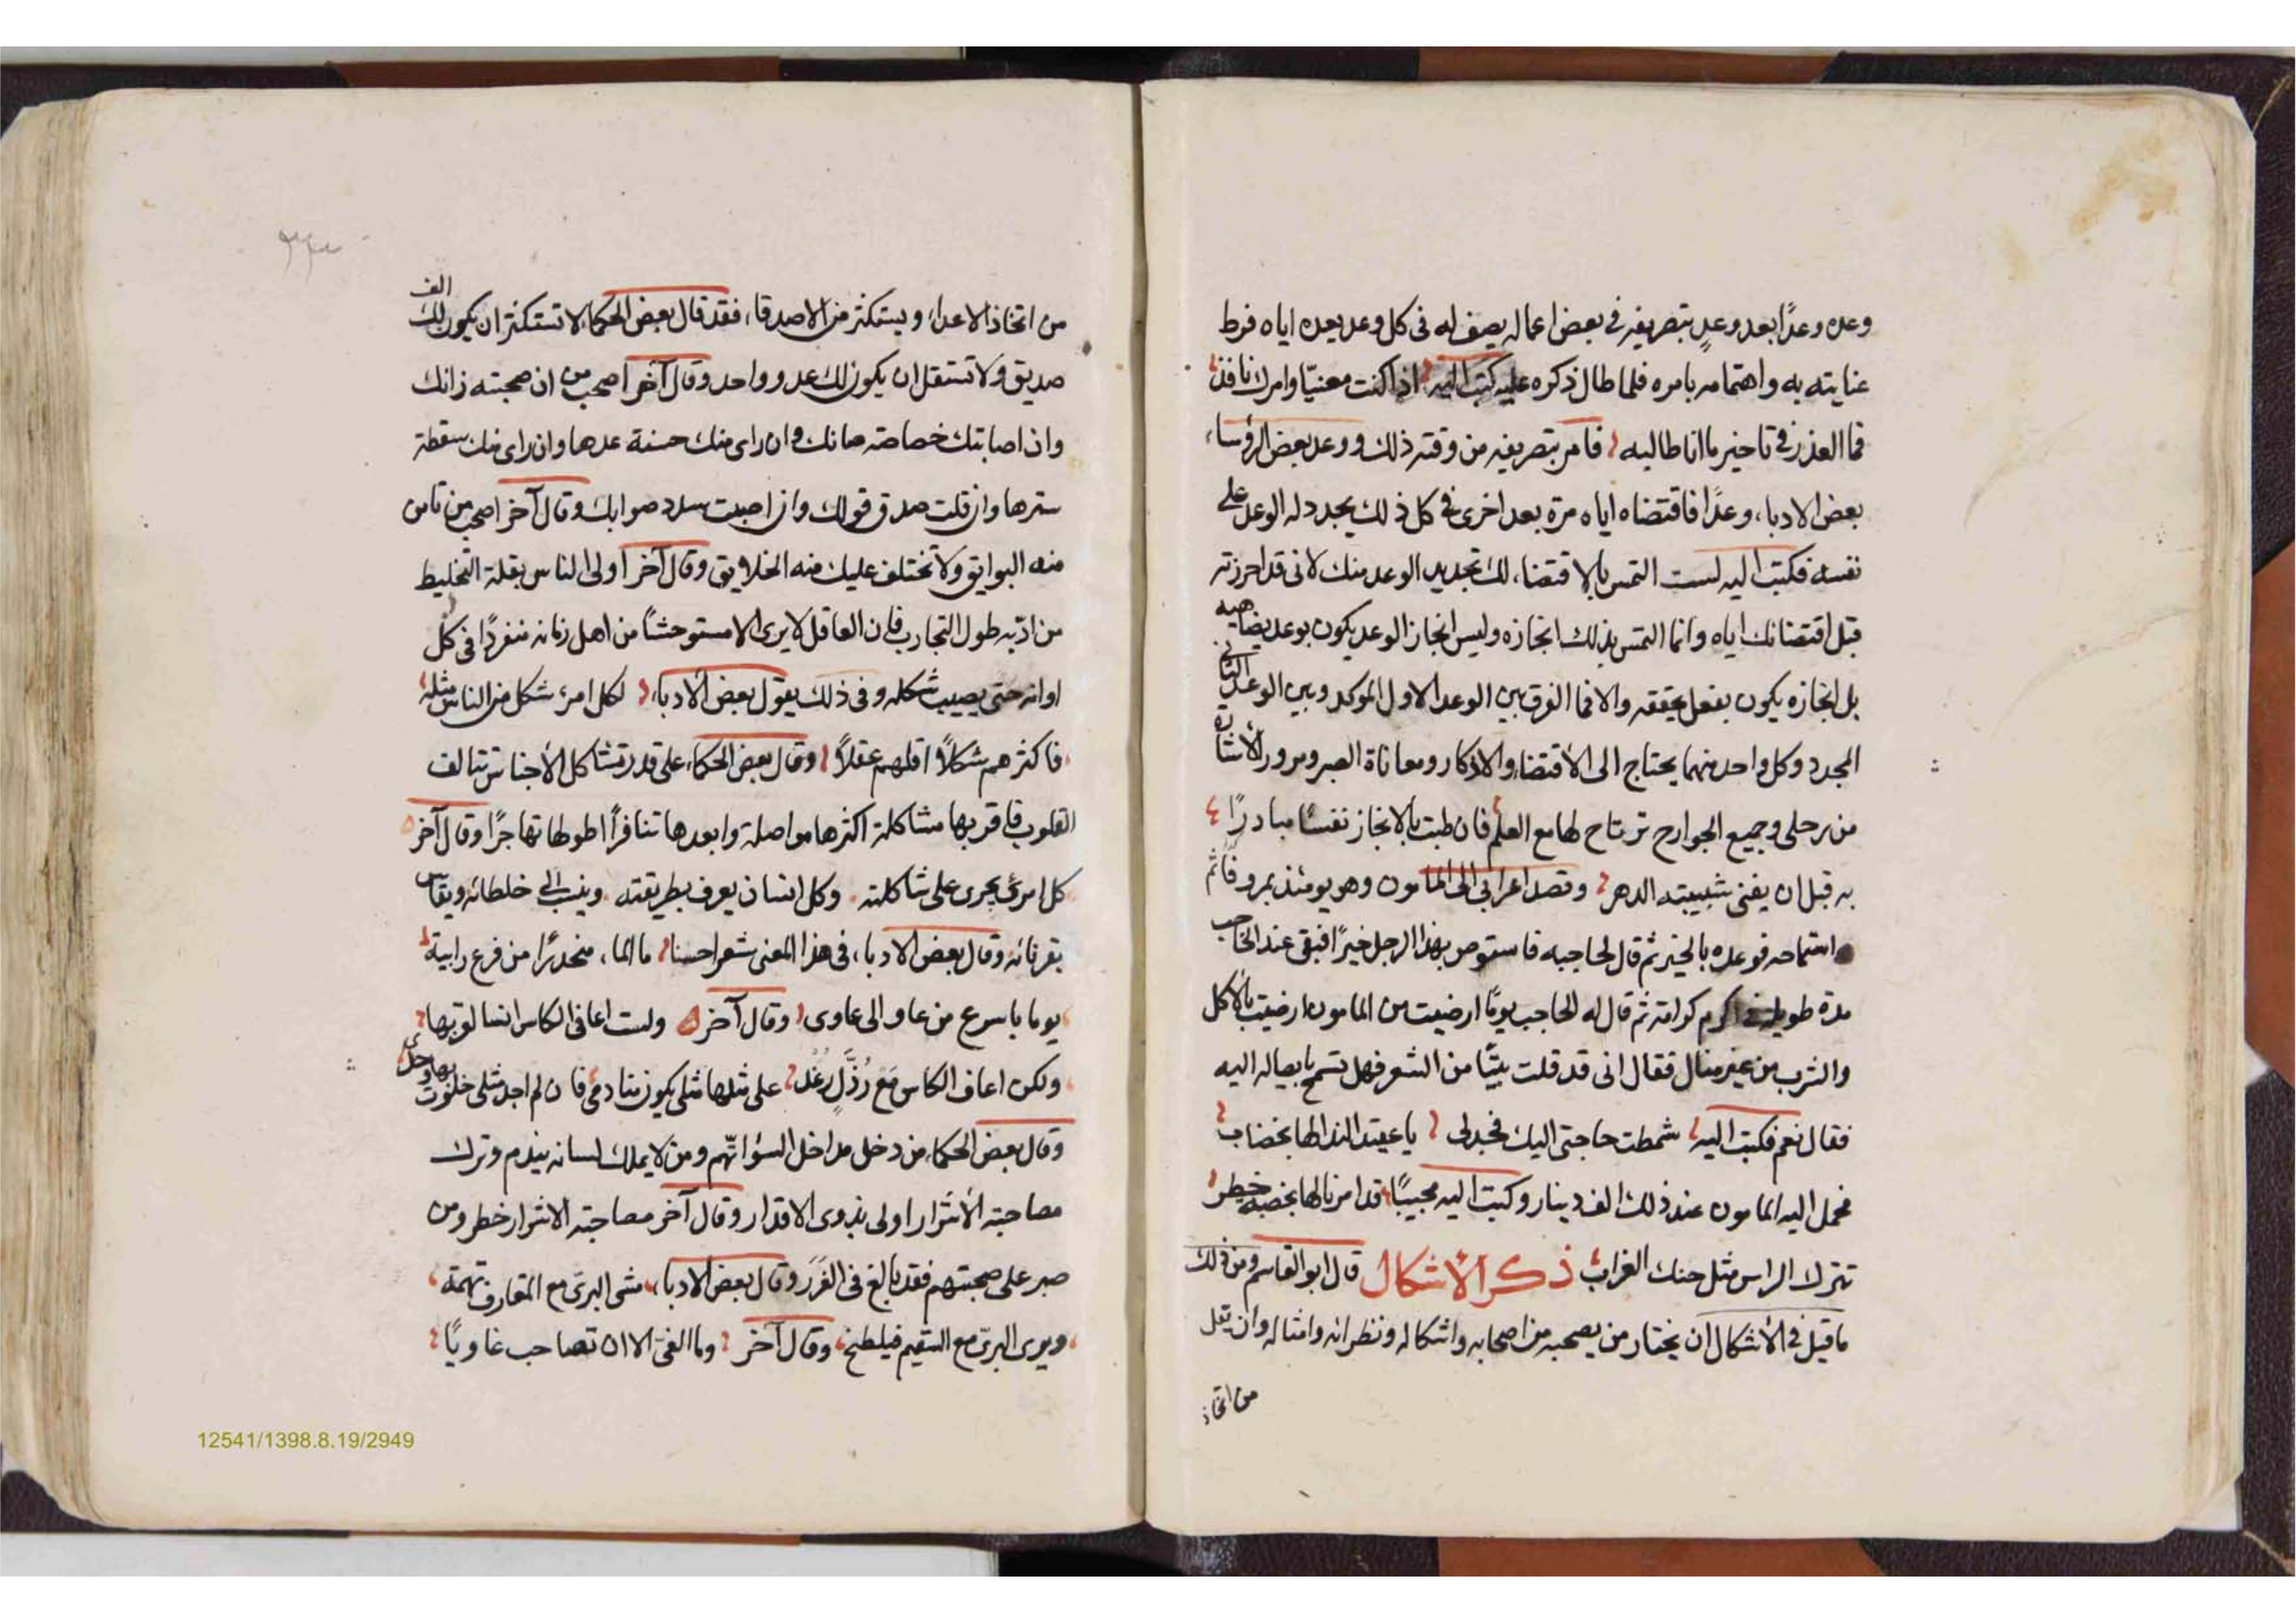 وعده وعدًا بعد وعدٍ بتصريفه في بعض اعماله يصف له فى كل وعد يعده اياه فرط
عنايته به واهتمامه بامره فلما طال ذكره عليه كتب اليه اذا كنت معنيّا وامرك نافذ
فما العذر في تاخير ما انا طالبه فامر بتصريفه من وقته ذلك ووعد بعض الرؤساء
بعض الادباء وعدًا فاقتضاه اياه مرة بعد اخرى في كل ذلك يجدد له الوعد على
نفسه فكتب اليه لست التمس بالاقتضاء لك تجديد الوعد منك لانى قد احرزته
قبل اقتضائك اياه وانما التمس بذلك انجازه وليس انجاز الوعد يكون بوعد يضاهيه
بل انجازه يكون بفعل يحققه والا فما الفرق بين الوعد الاول الموكد وبين الوعد الثانى
المجدد وكل واحد منهما يحتاج الى الأقتضاء والاذكار ومعاناة الصبر ومرور
من رحلى وجميع الجوارح ترتاح لها مع العلم فان طبت بالانجاز نفسًا مبادرًا
به قبل ان يفنى شبيبته الدهر وقصد اعرابي الى المامون وهو يومئذ بمرو فاثم
استماحه فوعده بالخير ثم قال لحاجبه فاستوص بهذا الرجل خيرًا فبقى عند الحاجب
مدة طويلة في اكرم كرامة ثم قال له الحاجب يومًا ارضيت من المامون ارضيت بالاكل
والشرب من غير منال فقال انى قد قلت بيتًا من الشعر فهل تسمح بايصاله اليه
فقال نعم فكتب اليه شمطت حاجتى اليك فجد لى يا عقيد الندا لها بخضاب
فحمل اليه المامون عند ذلك الف دينار وكتب اليه مجيبًا قد امرنا لها بخضبه خطر
تترك الراس مثل حنك الغراب ذكر الأشكال قال ابو القاسم ومن ذلك
ما قيل في الأشكال ان يختار من يصحبه من اصحابه واشكاله ونظرائه وامثاله وان يقل
من اتخاذ
من اتخاذ الاعداء ويستكثر من الاصدقاء فقد قال بعض الحكماء لا تستكثر ان يكون لك الف
صديق ولا تستقل ان يكون لك عدو واحد وقال آخر اصحب من ان صحبته زانك
وان اصابتك خصاصة مانك وان راى منك حسنة عدها وان راى منك سقطة
سترها وان قلت صدق قولك وان اصبت سدد صوابك وقال آخر اصحب من تامن
منه البوايق ولا تختلف عليك منه الخلايق وقال آخر اولى الناس بقلة التخليط
من ادّبه طول التجارب فان العاقل لا يرى الا مستوحشًا من اهل زمانه منفردًا فى كل
اوانه حتى يصيب شكله وفى ذلك يقول بعض الأدباء لكل امرء شكل من الناس مثله
فاكثرهم شكلاً اقلهم عقلاً وقال بعض الحكماء على قدر تشاكل الأجناس تتالف
القلوب فاقربها مشاكلة اكثرها مواصلة وابعدها تنافرأ اطولها تهاجرًا وقال آخر
كل امرئ يجرى على شاكلته وكل انسان يعرف بطريقته وينسب الى خلطائه ويقاس
بقرنائه وقال بعض الادباء فى هذا المعنى شعرا حسنا ما الماء منحدرًا من فرع رابية
يوما باسرع من غاو الى غاوى وقال آخر ولست اعافى الكاس انسا لقربها
ولكن اعاف الكاس مع رُذَّلٍ رُغد على مثلها مثلى يكون منادمى فان لم اجد مثلى خلوت بها وحدى
وقال بعض الحكماء من دخل مداخل السوء اتّهم ومن لا يملك لسانه يندم وترك
مصاحبة الأشرار اولى بذوى الاقدار وقال آخر مصاحبة الاشرار خطر ومن
صبر على صحبتهم فقد بالغ فى الغرر وقال بعض الادباء مشى البرىّ مع المقارف تهمة
ويرى البرىّ مع السقيم فيلطخ وقال آخر وما الغىّ الا ان تصاحب غاويًا
12541/1398.8.19/2949